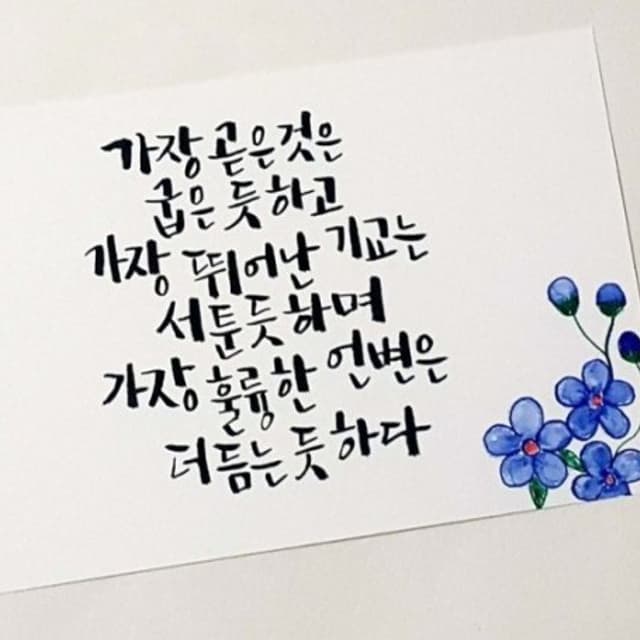 가장 곧은것은
굽은 듯 하고
가장 뛰어난 기교는
서툰듯 하며
가장 훌륭한 언변은
더듬는 듯 하다